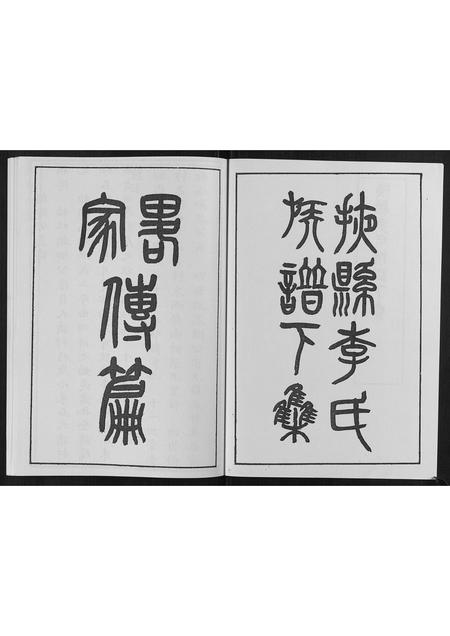 掖縣李氏
族譜下集
畧傳篇
家